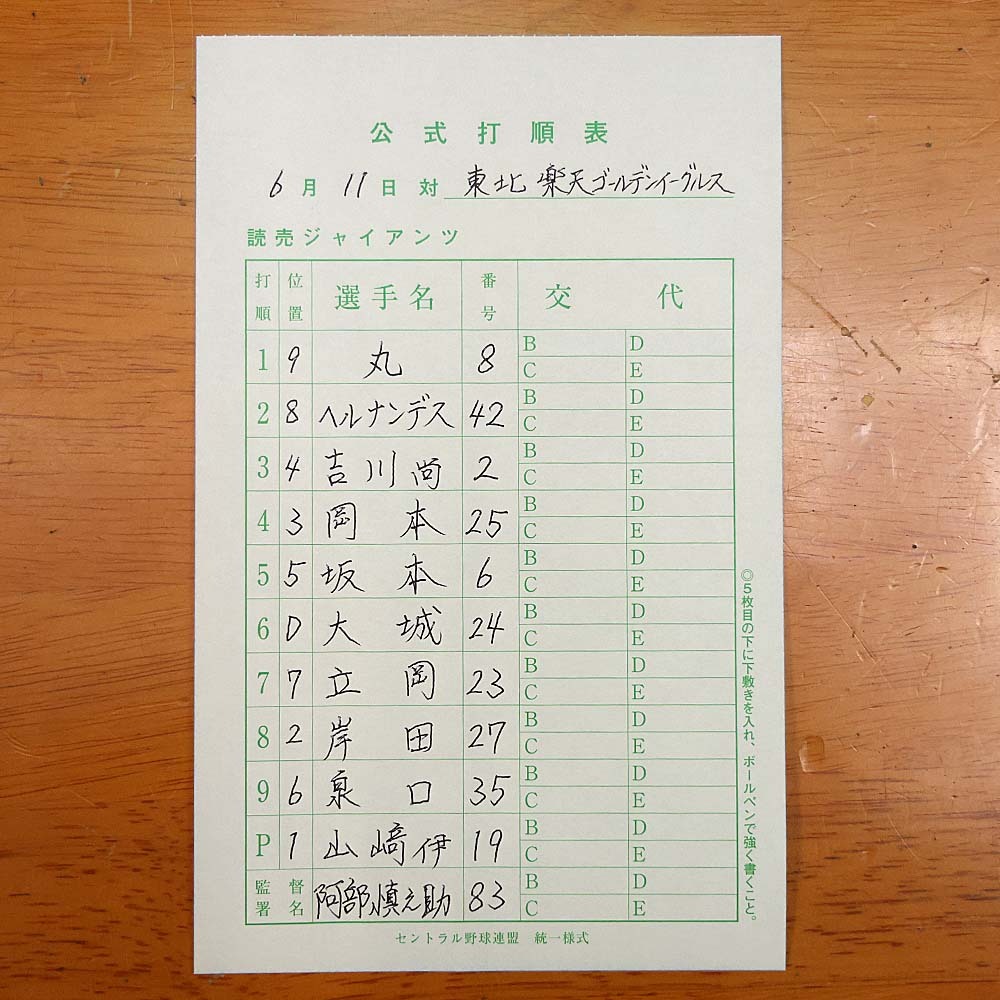 公式打順表
6月11日対 東北楽天ゴールデンイーグルス
読売ジャイアンツ
打順 位置 選手名 番号 交代
1 9 丸 8 B D C E
2 8 ヘルナンデス 42 B D C E
3 4 吉川尚 2 B D C E
4 3 岡本 25 B D C E
5 5 坂本 6 B D C E
6 D 大城 24 B D C E
7 7 立岡 23 B D C E
8 2 岸田 27 B D C E
9 6 泉口 35 B D C E
P 1 山﨑伊 19 B D C E
監督署名 阿部慎之助 83 B D C E
セントラル野球連盟 統一様式
◎5枚目の下に下敷きを入れ、ボールペンで強く書くこと。